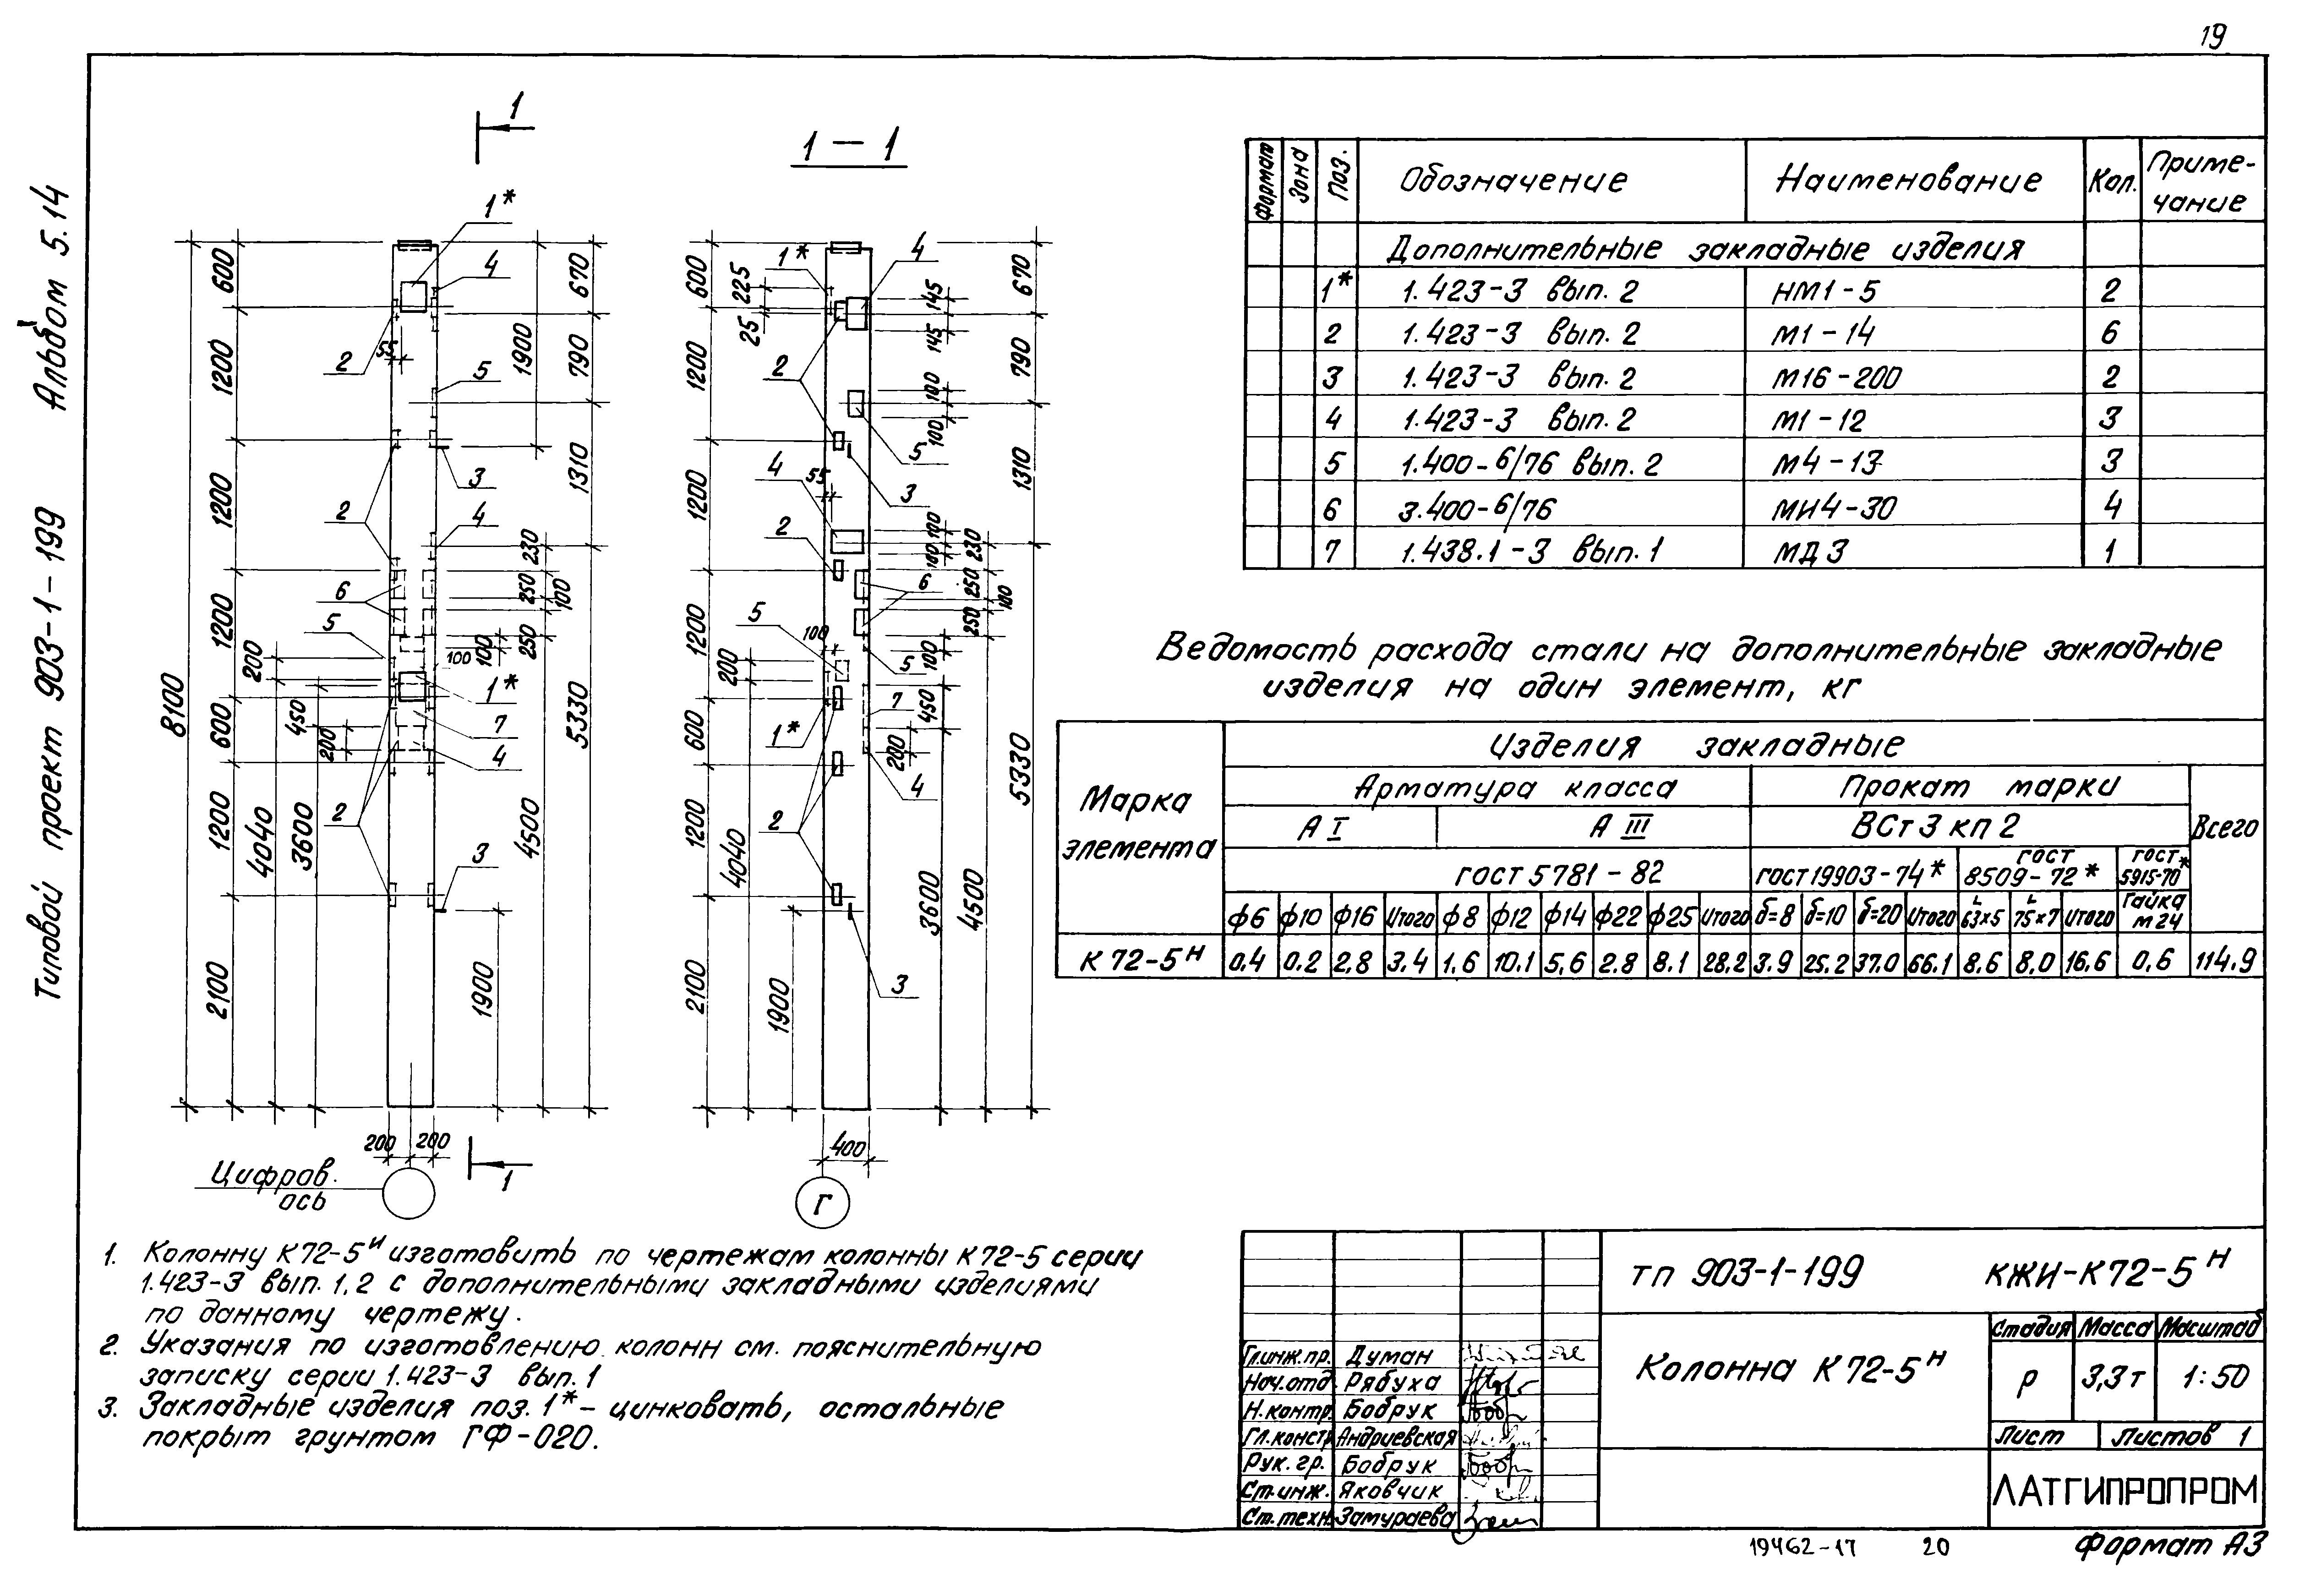 19
Типовой проект 903-1-199 Альбом 5.14
1
1*
4
2
55
5
3
2
4
6
5
1*
7
4
2
3
600
1200
1200
1200
600
1200
2100
8100
200
4040
450
3600
200
1900
670
790
1310
5330
230
250
100
250
100
100
4500
1900
200 200
1
Цифров.
ось
1-1
1*
4
2
5
4
55
3
2
6
5
100
5
7
1*
4
2
3
600
1200
1200
1200
600
1200
2100
225
25
200
4040
1900
145
145
100
100
100
100
230
250
100
250
100
450
200
3600
4500
670
790
1310
5330
400
Г
Формат Зона Поз. Обозначение Наименование Кол. Приме-
чание
Дополнительные закладные изделия
1* 1.423-3 вып. 2 НМ1-5 2
2 1.423-3 вып. 2 М1-14 6
3 1.423-3 вып. 2 М16-200 2
4 1.423-3 вып. 2 М1-12 3
5 1.400-6/76 вып. 2 М4-13 3
6 3.400-6/76 МИ4-30 4
7 1.438.1-3 вып. 1 МД3 1
Ведомость расхода стали на дополнительные закладные
изделия на один элемент, кг
Марка
элемента
Изделия закладные
Арматура класса Прокат марки
А I А III ВСт3кп2 Всего
ГОСТ 5781-82 ГОСТ 19903-74* ГОСТ
8509-72* ГОСТ
5915-70*
ф6 ф10 ф16 Итого ф8 ф12 ф14 ф22 ф25 Итого δ=8 δ=10 δ=20 Итого L 63×5 L 75×7 Итого Гайка
М24
К 72-5н 0.4 0.2 2.8 3.4 1.6 10.1 5.6 2.8 8.1 28.2 3.9 25.2 37.0 66.1 8.6 8.0 16.6 0.6 114.9
1. Колонну К72-5и изготовить по чертежам колонны К72-5 серии
1.423-3 вып. 1,2 с дополнительными закладными изделиями
по данному чертежу.
2. Указания по изготовлению колонн см. пояснительную
записку серии 1.423-3 вып. 1
3. Закладные изделия поз. 1* - цинковать, остальные
покрыт грунтом ГФ-020.
ТП 903-1-199 КЖИ-К72-5н
Колонна К72-5н
Стадия Масса Масштаб
Р 3,3т 1:50
Лист Листов 1
ЛАТГИПРОПРОМ
Гл.инж.пр. Думан
Нач.отд. Рябуха
Н.контр. Бобрук
Гл.констр. Андриевская
Рук. гр. Бобрук
Ст.инж. Яковчик
Ст.техн. Замураева
19462-17 20 Формат А3